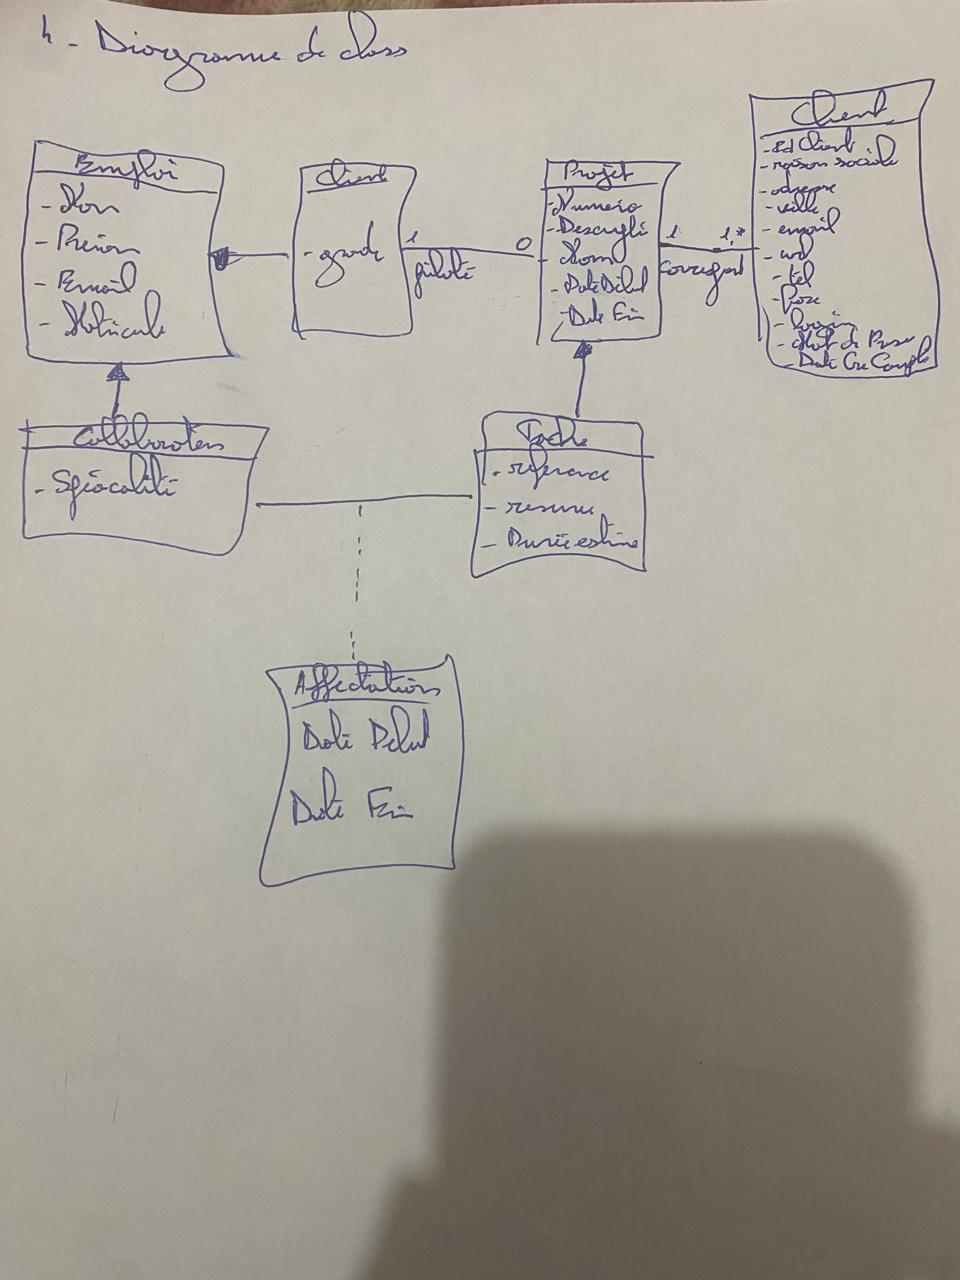 4 - Diagramme de class
Emploi
- Nom
- Prénom
- Email
- Matricule
Client
- grade
1
piloté
0
Projet
- Numero
- Descripti
- Nom
- Date Début
- Date Fin
1
1,*
correspond
Client
- Id Client
- raison sociale
- adresse
- ville
- email
- url
- tel
- login
- Mot de Passe
- Date Cre Compte
Collaborateurs
- Spécialité
Tache
- reference
- resume
- Durée estime
Affectations
Date Début
Date Fin